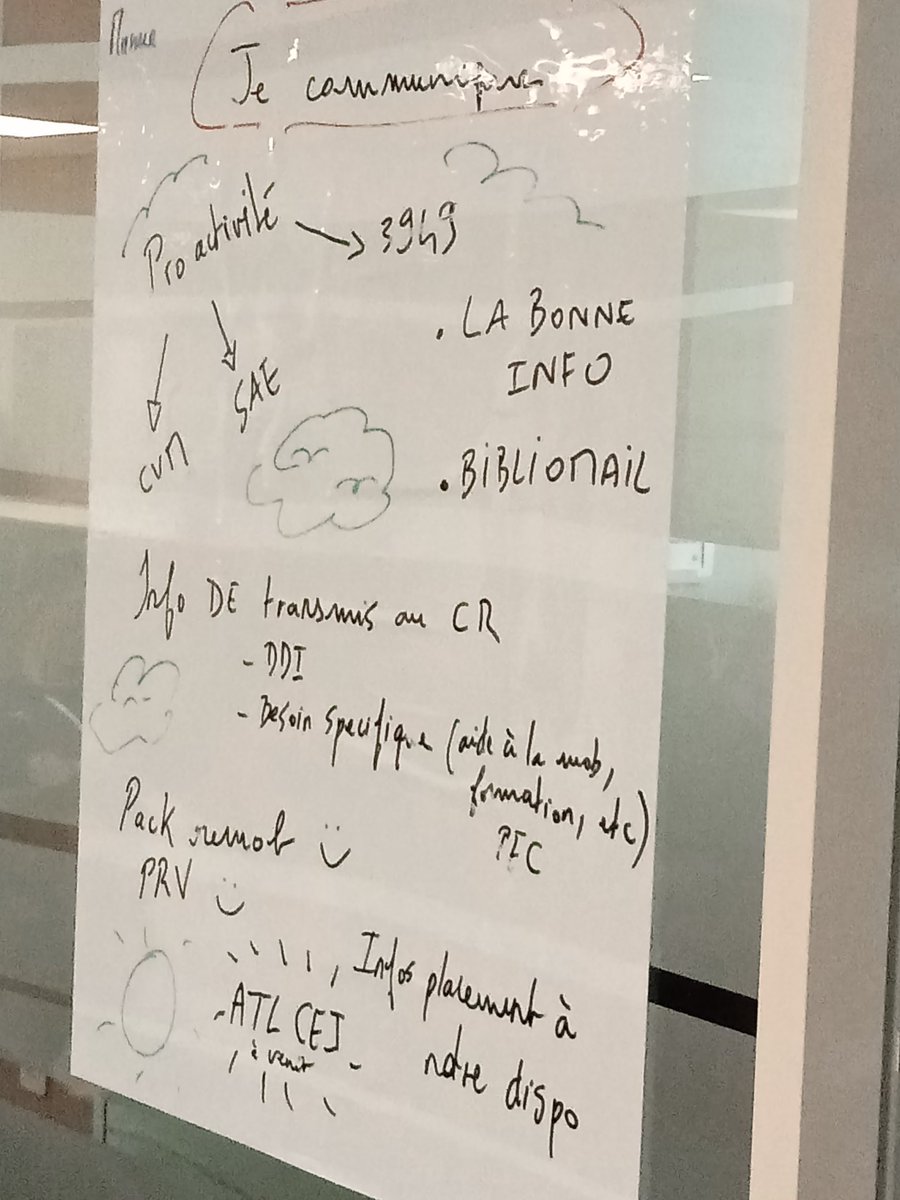 Je communique
Proactivité
3949
SAE
CVM
. LA BONNE
INFO
. BiBLiOMAiL
Info DE transmis au CR
- DDI
- Besoin specifique (aide à la mob,
formation, etc)
PIC
Pack remob
PRV
Infos placement à
notre dispo
- ATL CEJ -
à venir